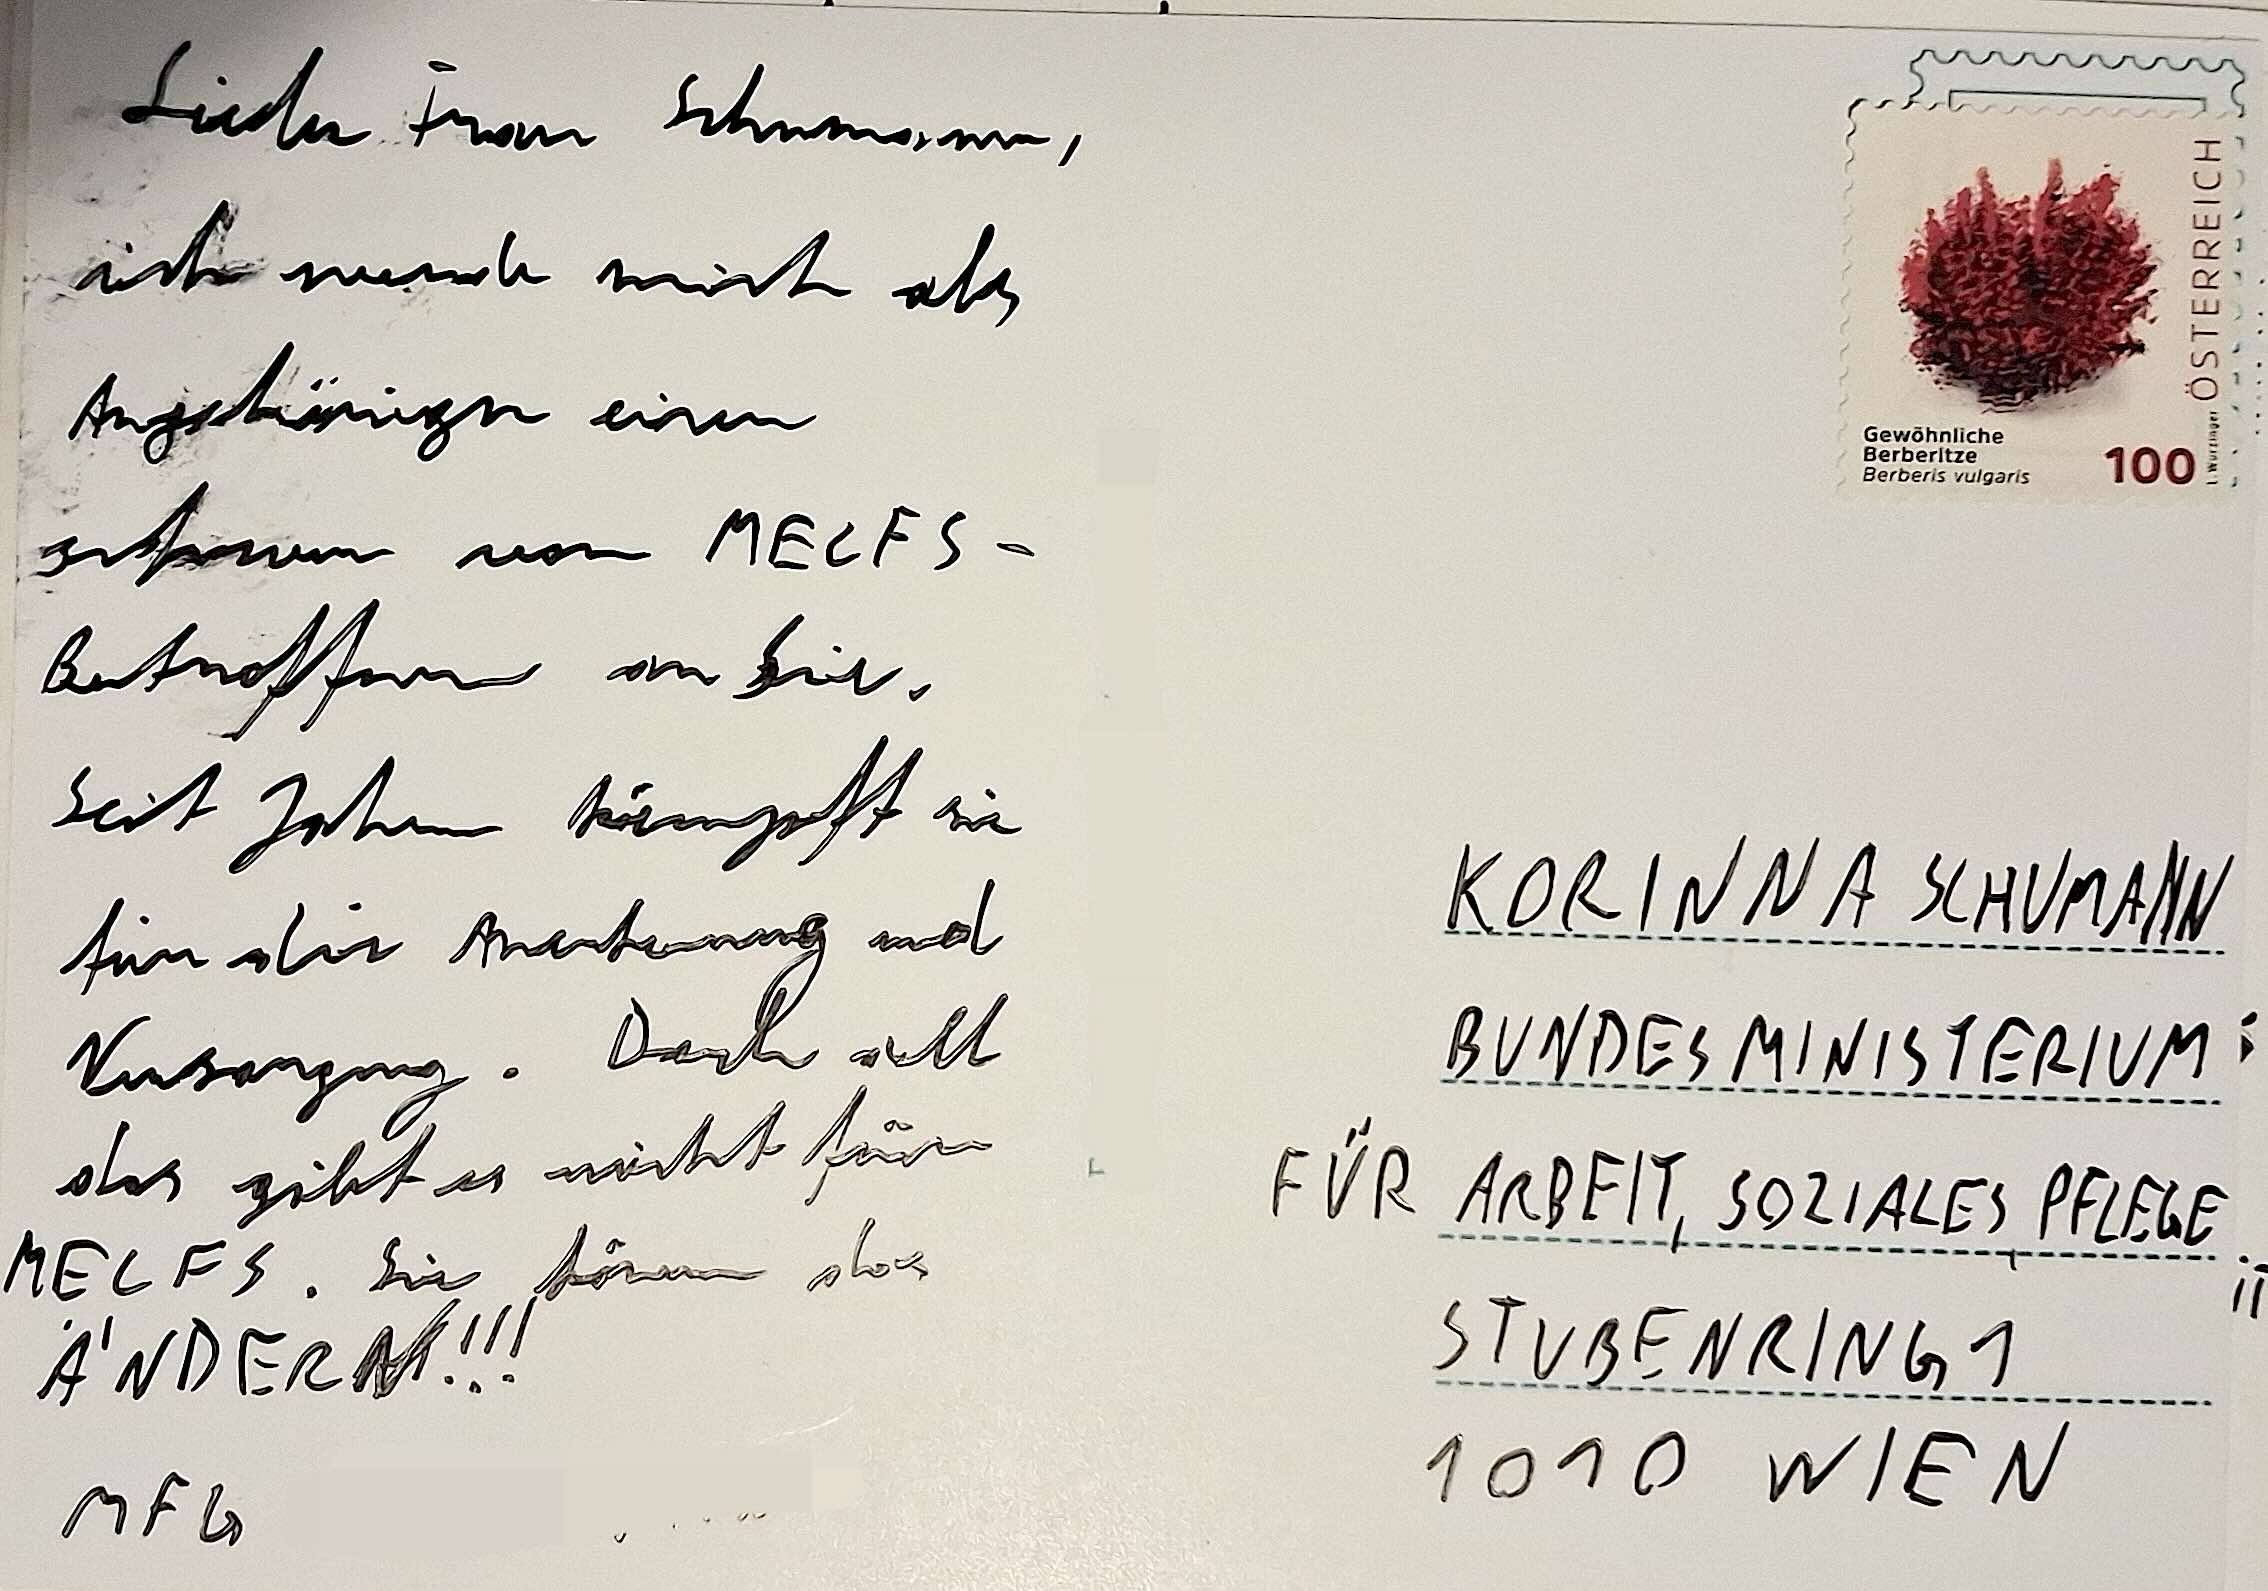 Liebe Frau Schumann,
ich wende mich als
Angehöriger einer
schweren von MECFS-
Betroffenen an Sie.
Seit Jahren kämpft sie
für die Anerkennung und
Versorgung. Doch all
das gibt es nicht für
MECFS. Sie können das
ÄNDERN!!!
MFG
ÖSTERREICH
Gewöhnliche
Berberitze
Berberis vulgaris
100
I. Wurzinger
KORINNA SCHUMANN
BUNDESMINISTERIUM
FÜR ARBEIT, SOZIALES, PFLEGE
STUBENRING 1
1010 WIEN